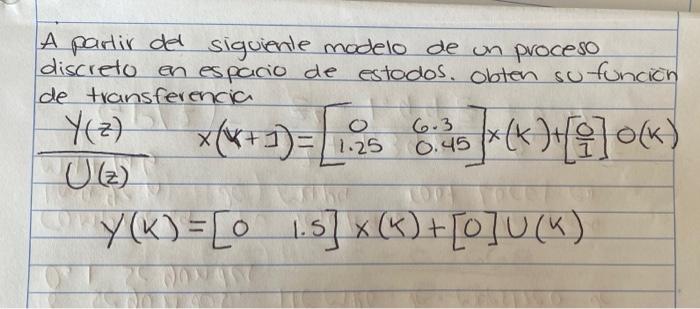 A partir del siguiente modelo de un proceso
discreto en espacio de estados. obten su función
de transferencia
Y(z)/U(z) x(k+1)=[0 6.3; 1.25 0.45]x(k)+[0; 1]U(k)
Y(k)=[0 1.5] x(k)+[0]U(k)